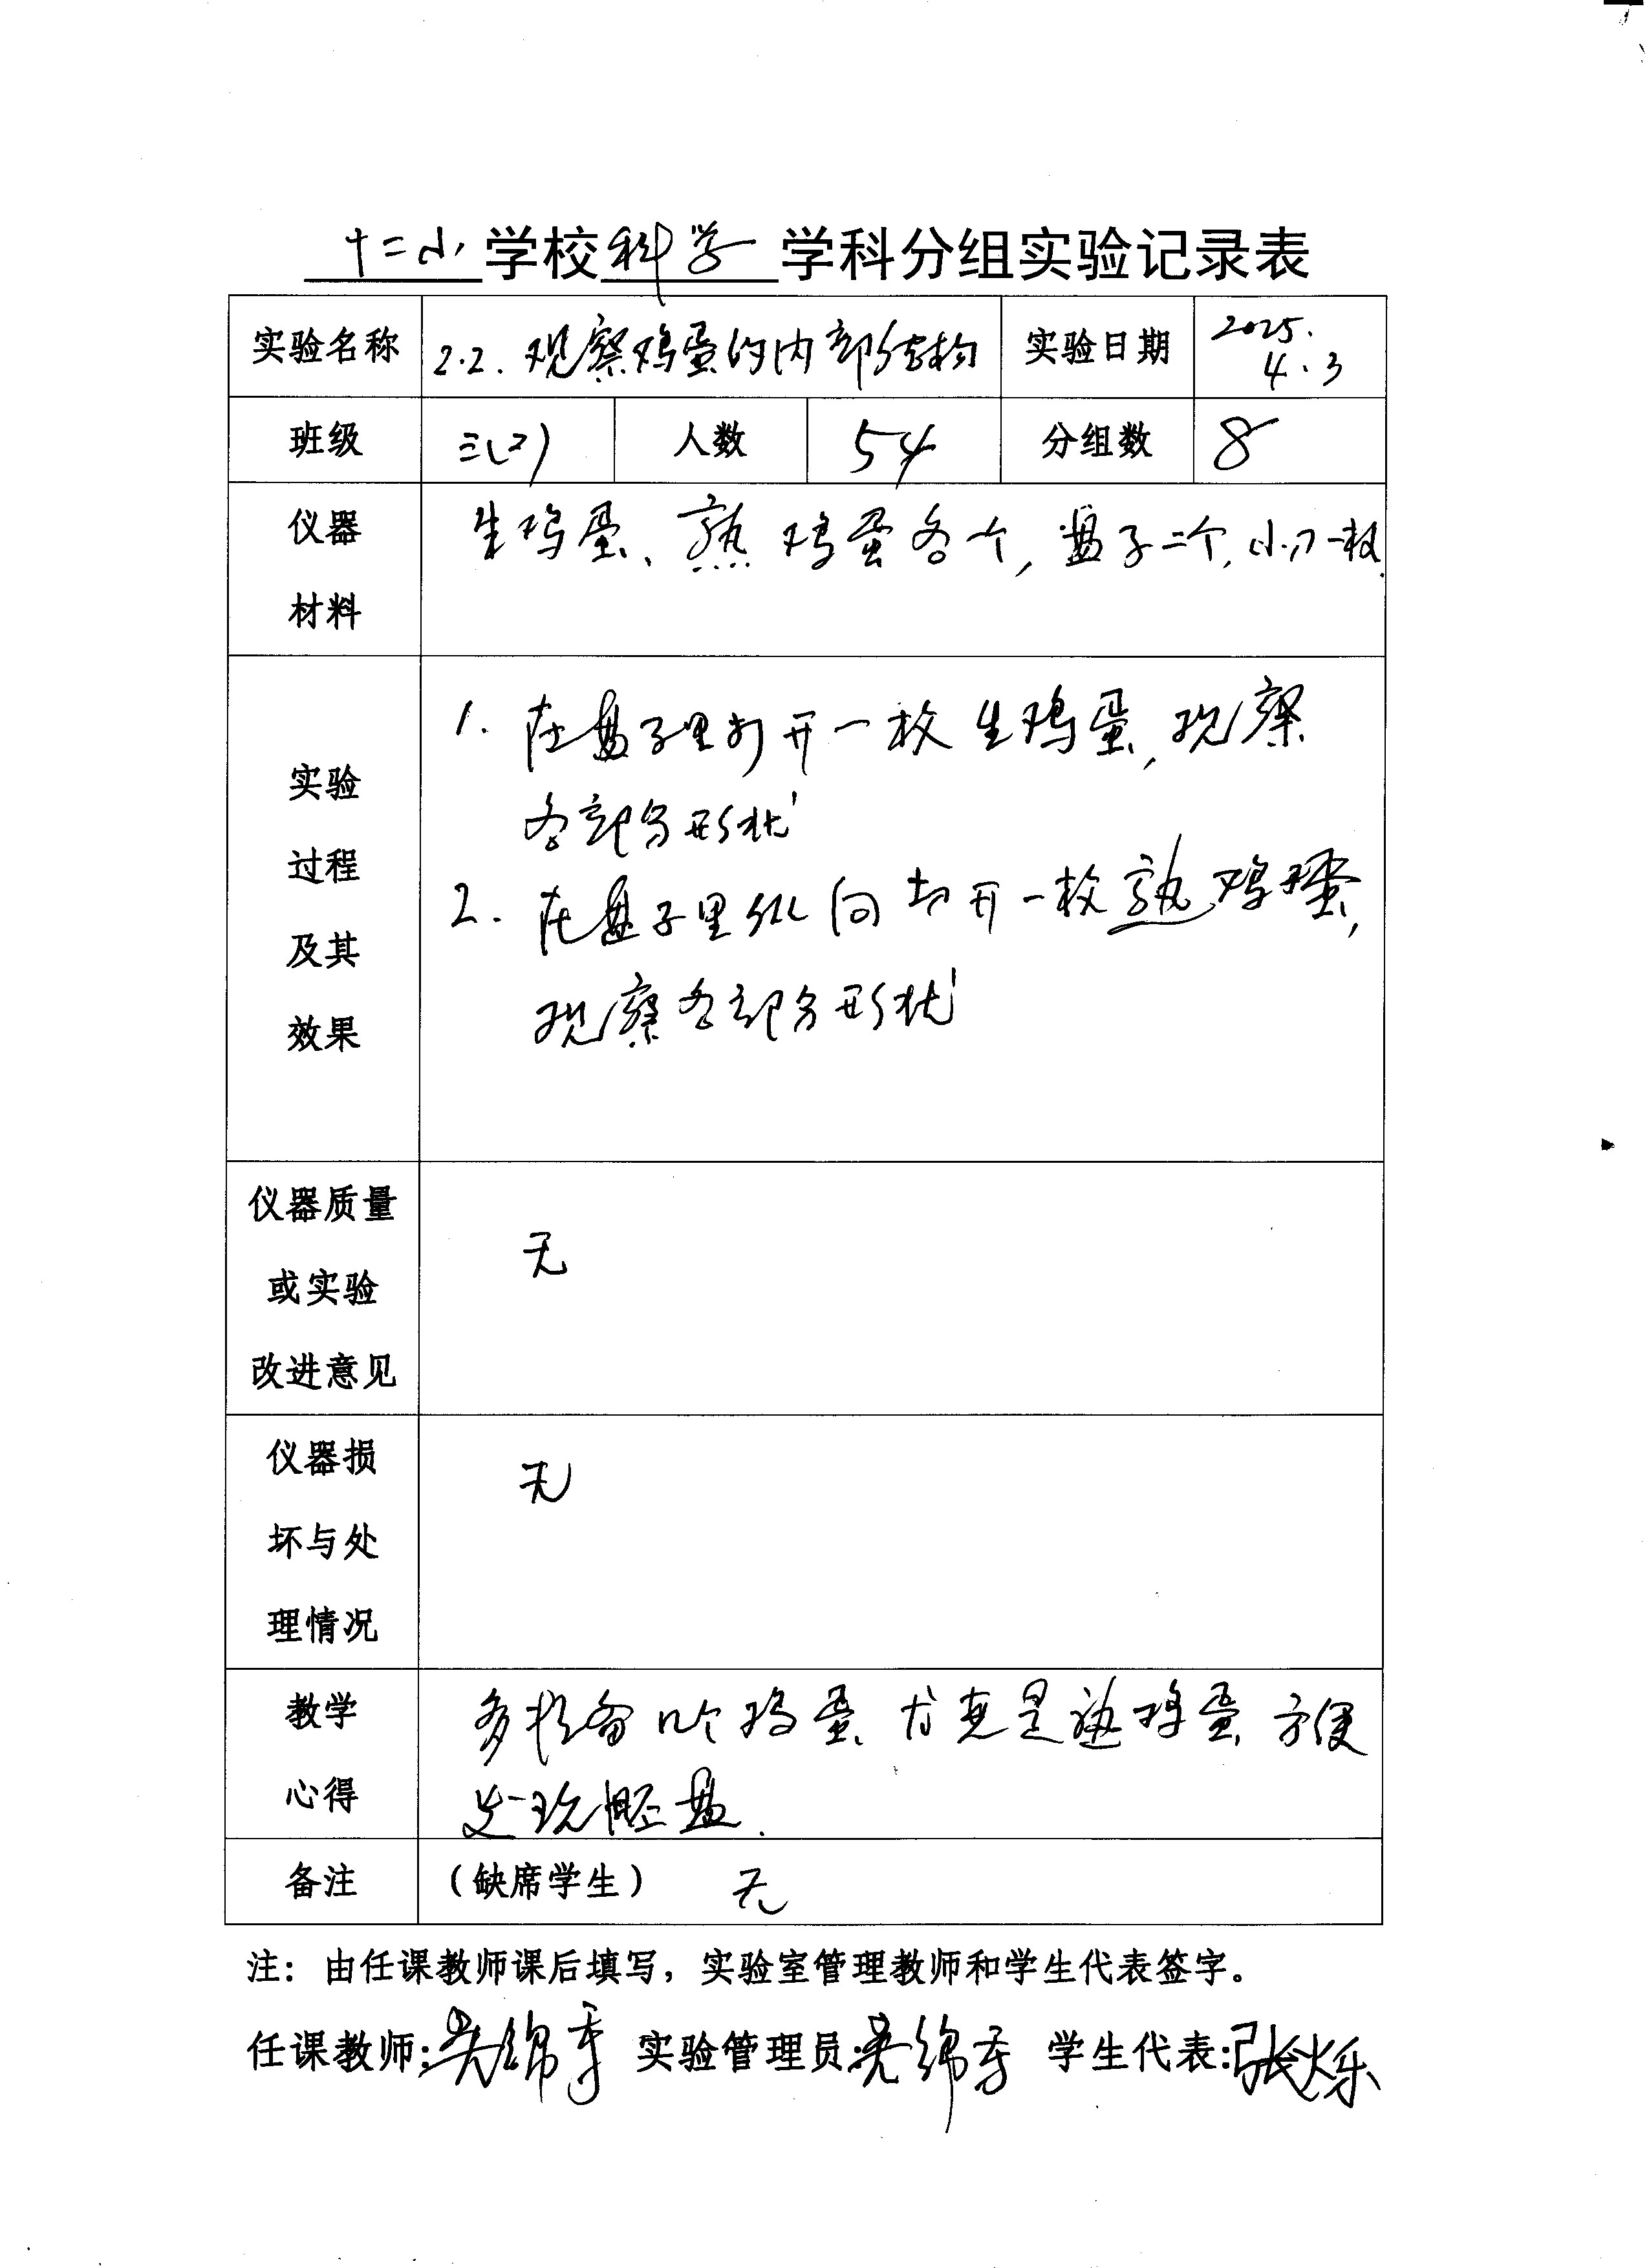 十二小学校科学学科分组实验记录表
实验名称 2.2.观察鸡蛋的内部结构 实验日期 2025.
4.3
班级 三(2) 人数 54 分组数 8
仪器 生鸡蛋、熟鸡蛋各个,盘子二个,小刀一枚.
材料
1. 在盘子里打开一枚生鸡蛋,观察
实验
各部分形状
过程
2. 在盘子里纵向切开一枚熟鸡蛋,
及其
观察各部分形状
效果
仪器质量
无
或实验
改进意见
仪器损
无
坏与处
理情况
教学 多准备几个鸡蛋,尤其是熟鸡蛋,方便
心得 发现胚盘.
备注 (缺席学生) 无
注:由任课教师课后填写,实验室管理教师和学生代表签字。
任课教师: 实验管理员: 学生代表:张烁